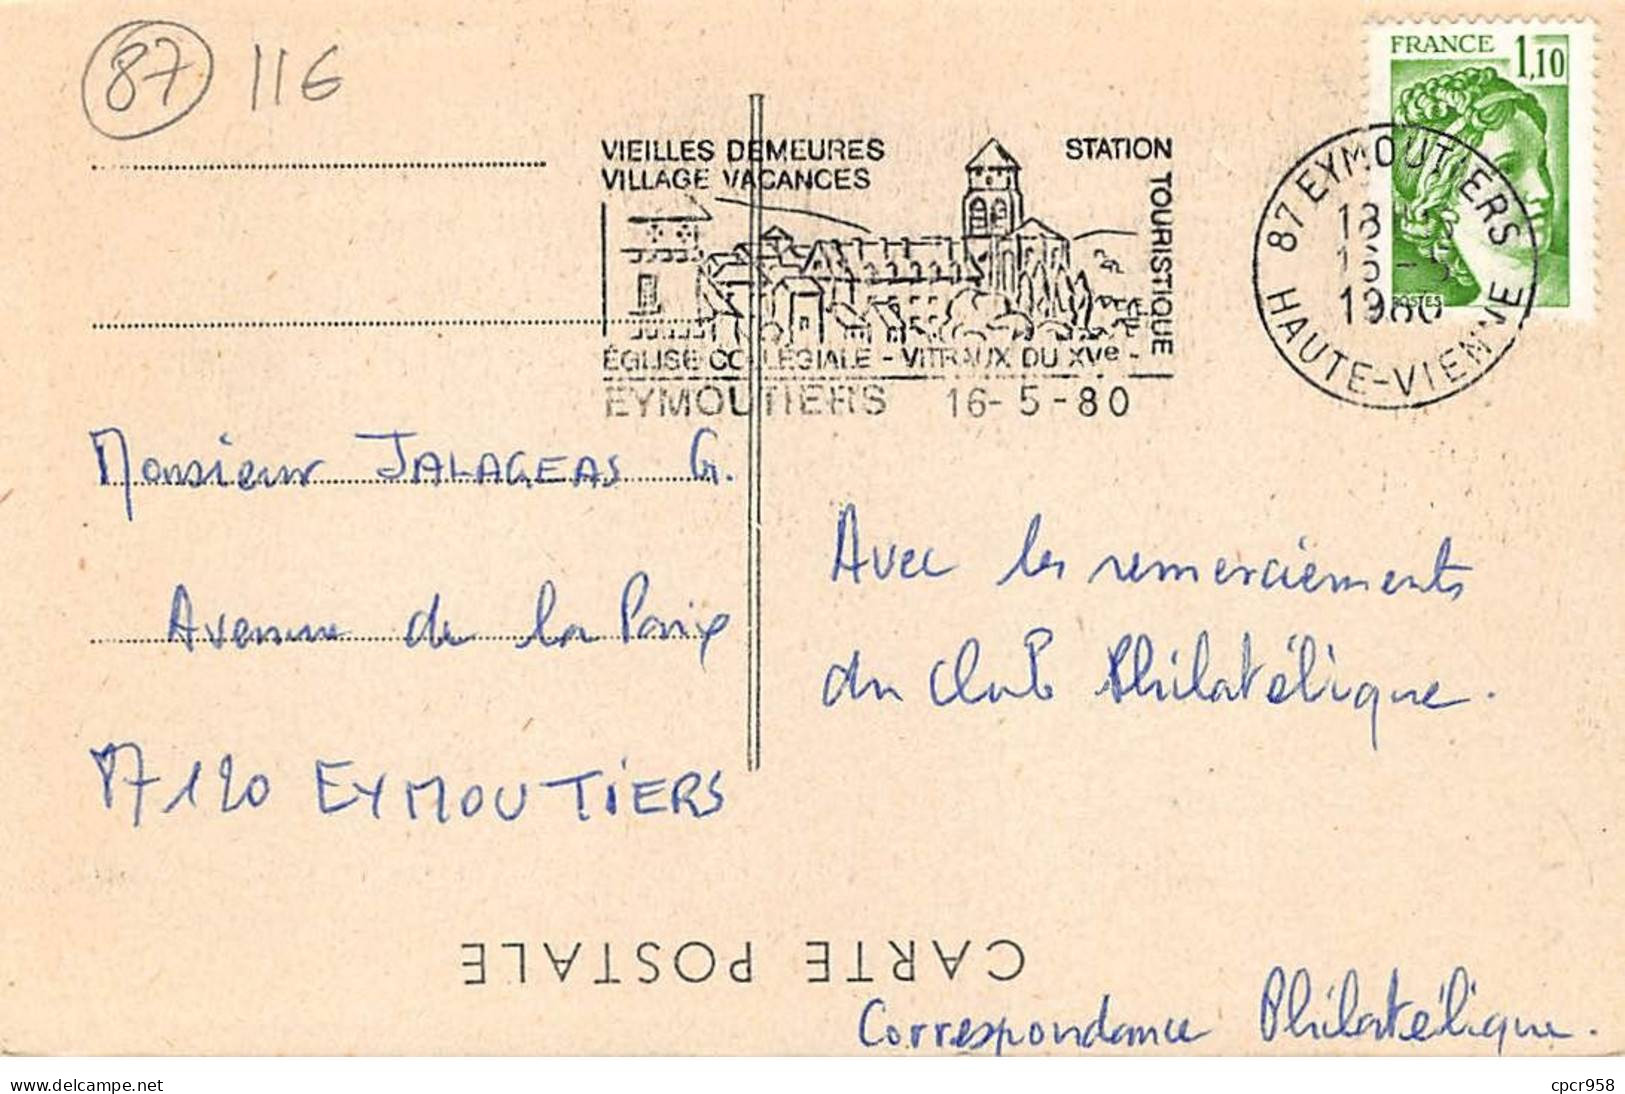 87 116
FRANCE 1,10
POSTES
VIEILLES DEMEURES
VILLAGE VACANCES
STATION TOURISTIQUE
ÉGLISE COLLÉGIALE - VITRAUX DU XVe -
EYMOUTIERS 16-5-80
87 EYMOUTIERS
1980
HAUTE-VIENNE
Monsieur JALAGEAS G.
Avenue de la Paix
87120 EYMOUTIERS
Avec les remerciements
du Club Philatélique.
CARTE POSTALE
Correspondance Philatélique.
delcampe.net
cpcr958